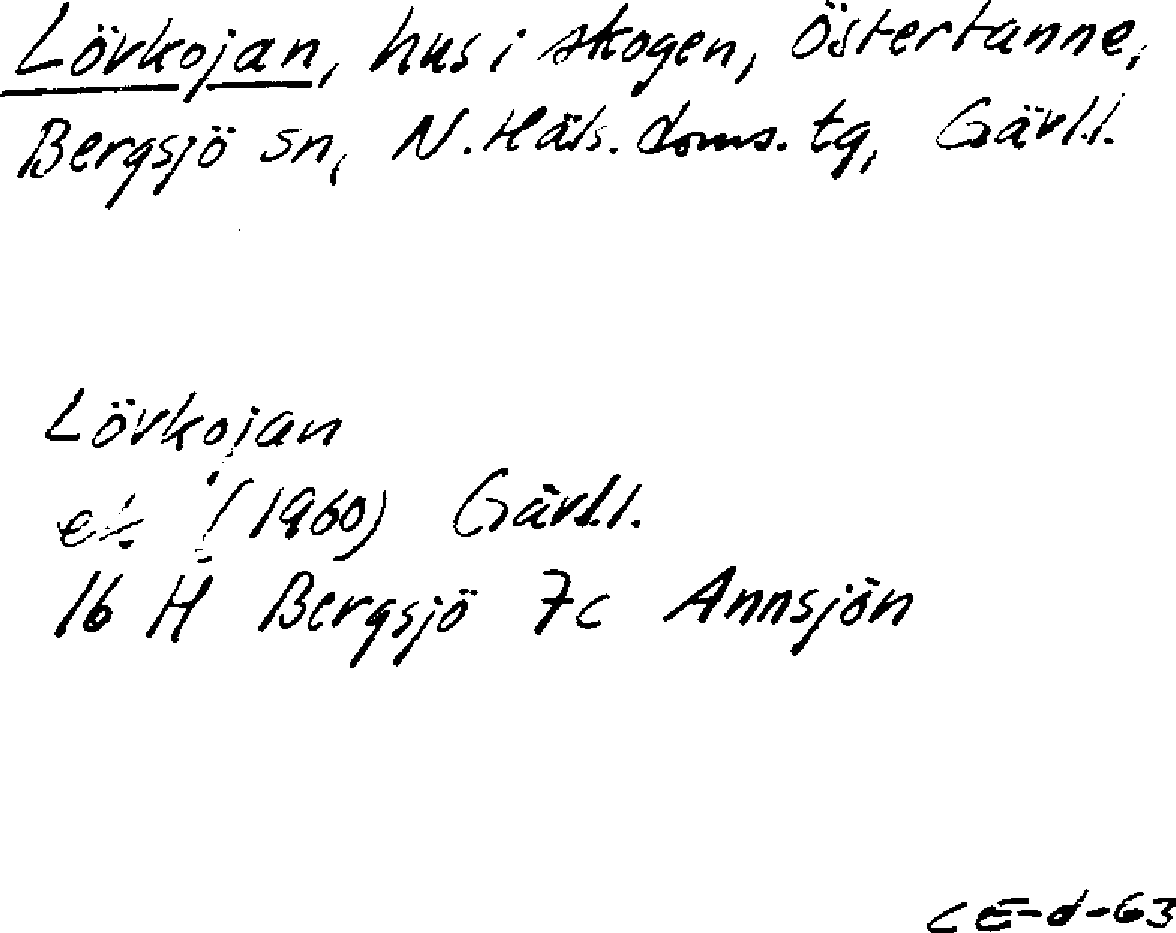 Lövkojan, hus i skogen, Östertanne,
Bergsjö sn, N. Häls. doms. tg, Gävl.l.
Lövkojan
(1960) Gävl.l.
16 H Bergsjö 7c Annsjön
CE-d-63